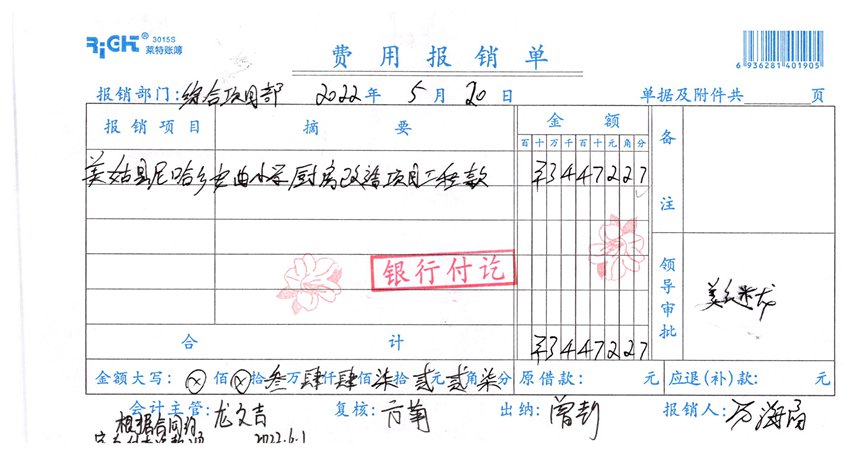 RiGHT® 3015S
莱特账簿
费用报销单
6 936281 401905
报销部门:综合项目部 2022年 5月 20日 单据及附件共 页
报销项目 摘要 金额 备注
百十万千百十元角分
美姑县尼哈乡 曲小学厨房改造项目工程款 ¥3447227
银行付讫
领导审批
合计 ¥3447227
金额大写: ⊗佰⊗拾叁万肆仟肆佰柒拾贰元贰角柒分 原借款: 元 应退(补)款: 元
会计主管:龙文吉 复核:方苇 出纳:曾 报销人:万海
根据合同约
2022.6.1